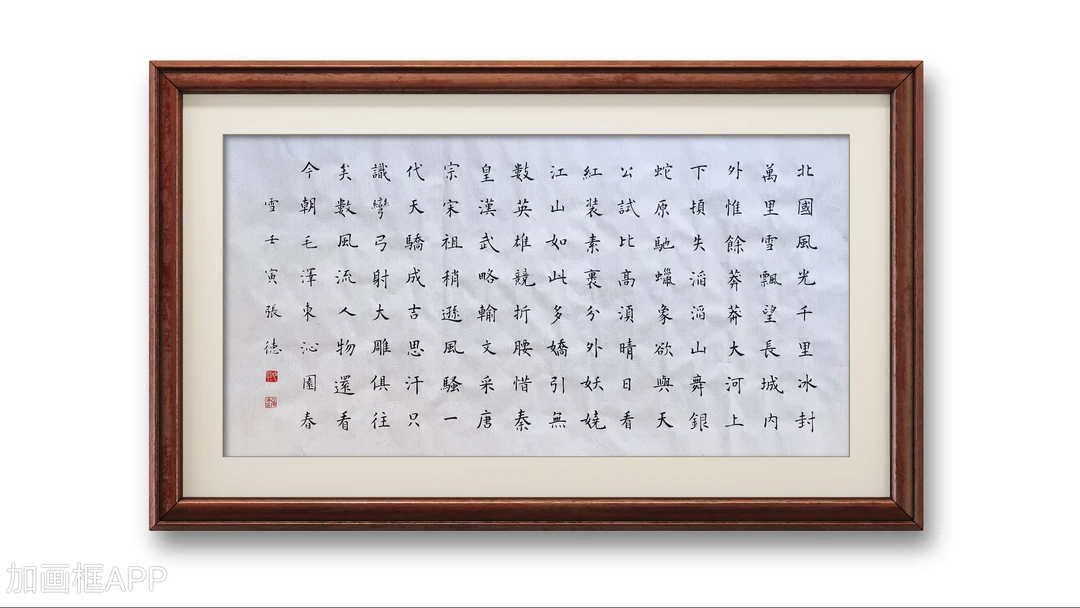 北國風光千里冰封
萬里雪飄望長城內
外惟餘莽莽大河上
下頓失滔滔山舞銀
蛇原馳蠟象欲與天
公試比高須晴日看
紅裝素裹分外妖嬈
江山如此多嬌引無
數英雄競折腰惜秦
皇漢武略輸文采唐
宗宋祖稍遜風騷一
代天驕成吉思汗只
識彎弓射大雕俱往
矣數風流人物還看
今朝毛澤東沁園春
雪壬寅張德
加画框APP